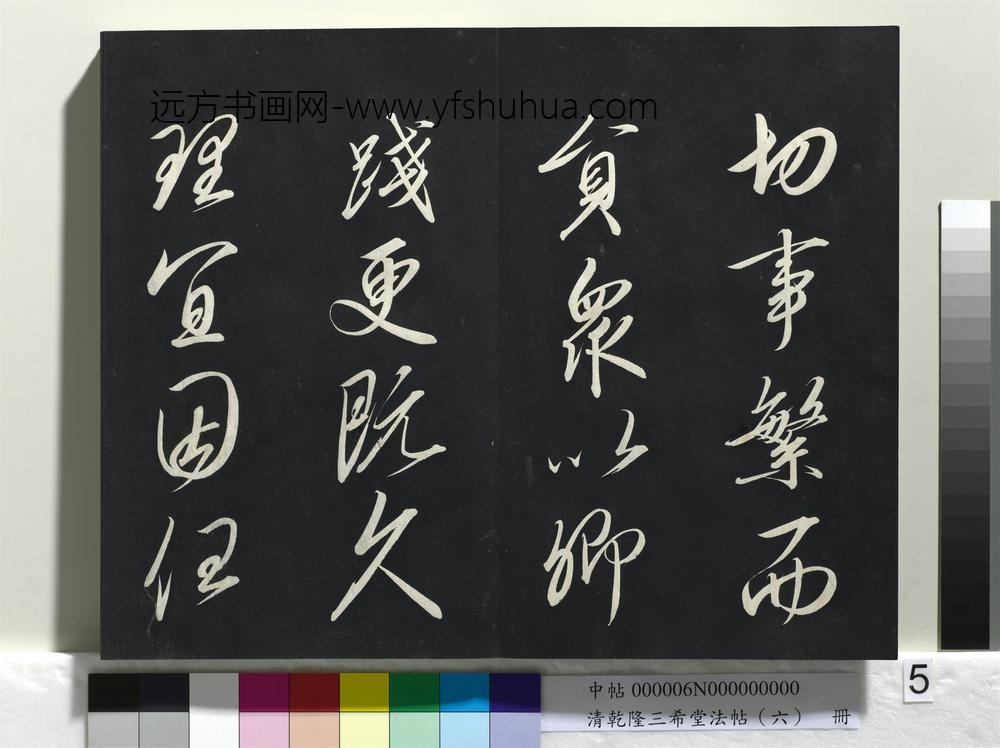 远方书画网-www.yfshuhua.com
切事繁而
貟衆以卿
踐更既久
理宜因任
5
中帖 000006N000000000
清乾隆三希堂法帖（六） 冊